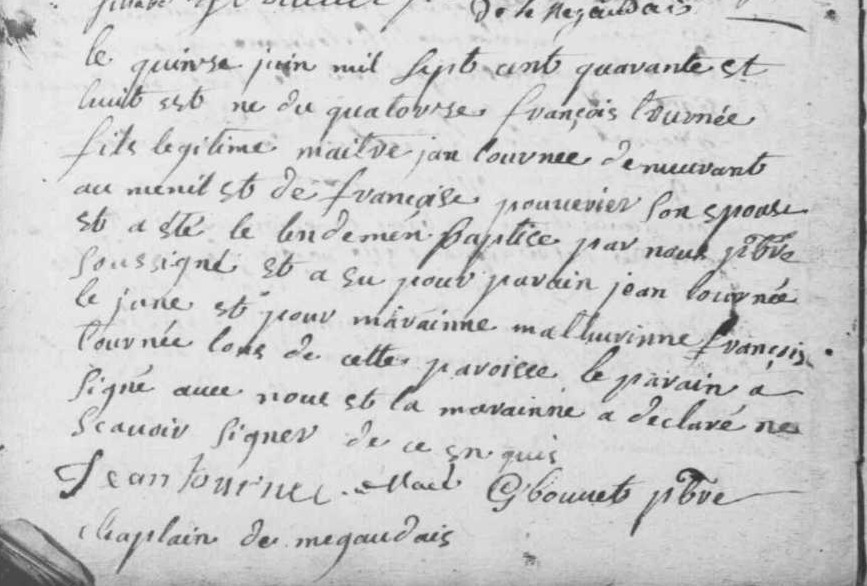 de la Megaudais
le quinse juin mil sept cent quarante et
huit est ne du quatorse françois tournée
fils legitime maitre jan tournee demeurant
au menil et de françoise pouuerier son epouse
et a eté le lendemén baptise par nous pbre
soussigné et a eu pour parain jean tournée
le june et pour marainne mathurinne françois
tournée tous de cette paroisse le parain a
signé avec nous et la marainne a declaré ne
scauoir signer de ce en quis
Jean tournee G bouuet pbre
chaplain de megaudais